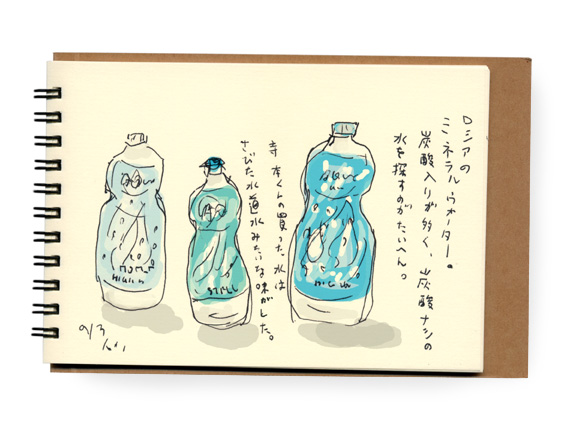 ロシアの
ミネラル・ウォーター。
炭酸入りが多く、炭酸ナシの
水を探すのがたいへんっ
寺本くんの買った水は
さびた水道水みたいな味がした。
AQUA
STILL
9/3